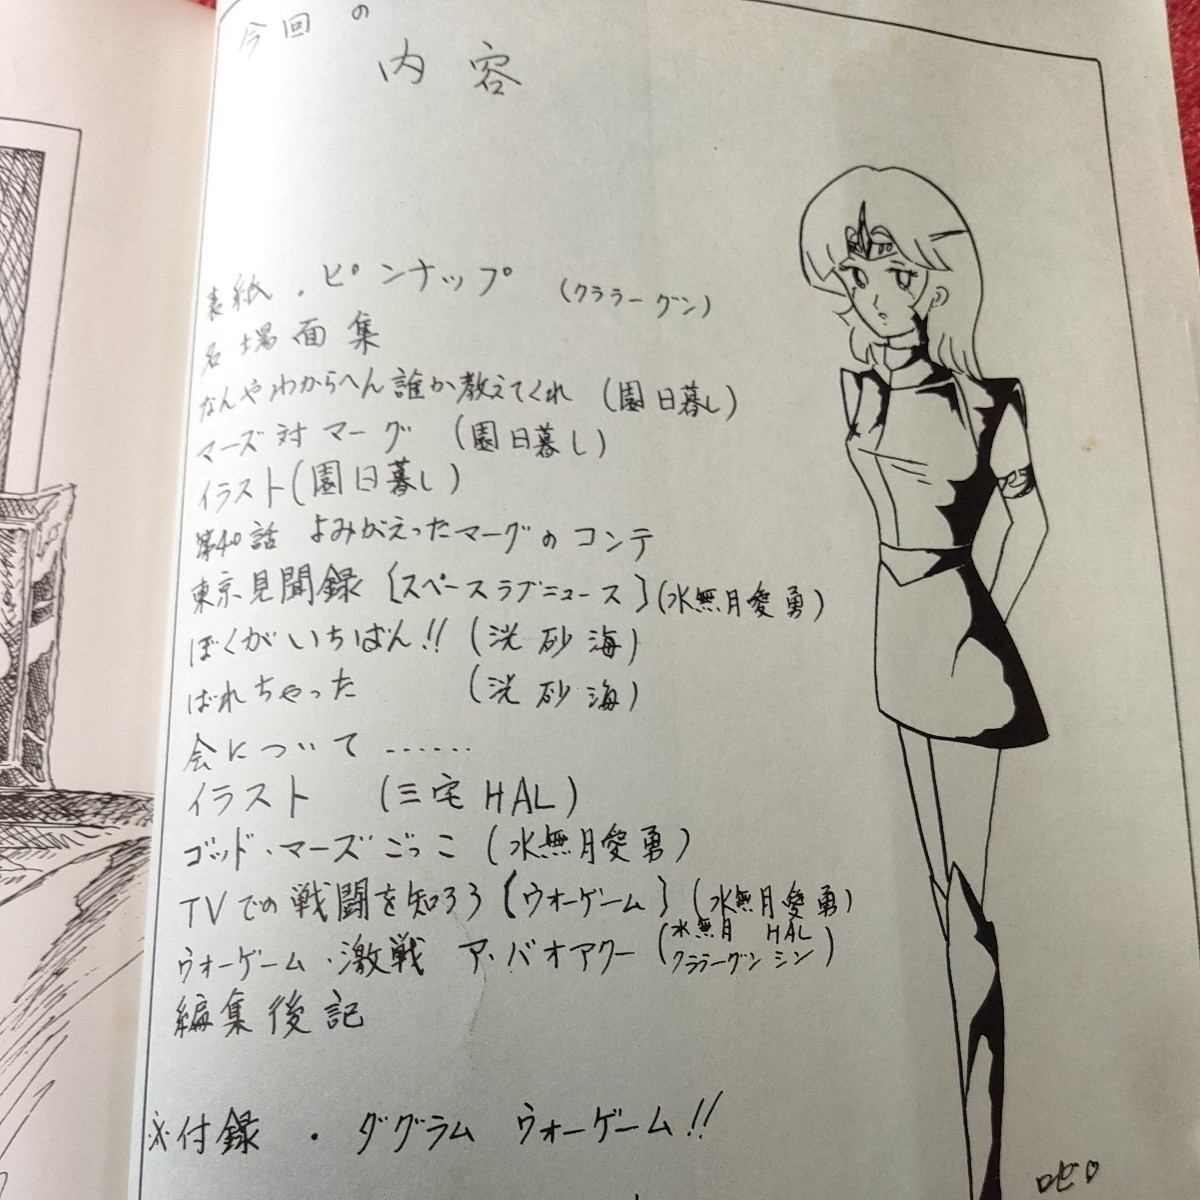 今回の
内容
表紙・ピンナップ (クララーグン)
名場面集
なんやわからへん誰か教えてくれ (園日暮し)
マーズ対マーグ (園日暮し)
イラスト(園日暮し)
第40話 よみがえったマーグのコンテ
東京見聞録〔スペースラブニュース〕(水無月愛勇)
ぼくがいちばん!! (洸砂海)
ばれちゃった (洸砂海)
会について……
イラスト (三宅HAL)
ゴッド・マーズごっこ (水無月愛勇)
TVでの戦闘を知ろう〔ウォーゲーム〕(水無月愛勇)
ウォーゲーム・激戦 ア・バオアクー (水無月 HAL クララーグン シン)
編集後記
※付録 ・ ダグラム ウォーゲーム!!
ロゼ♡